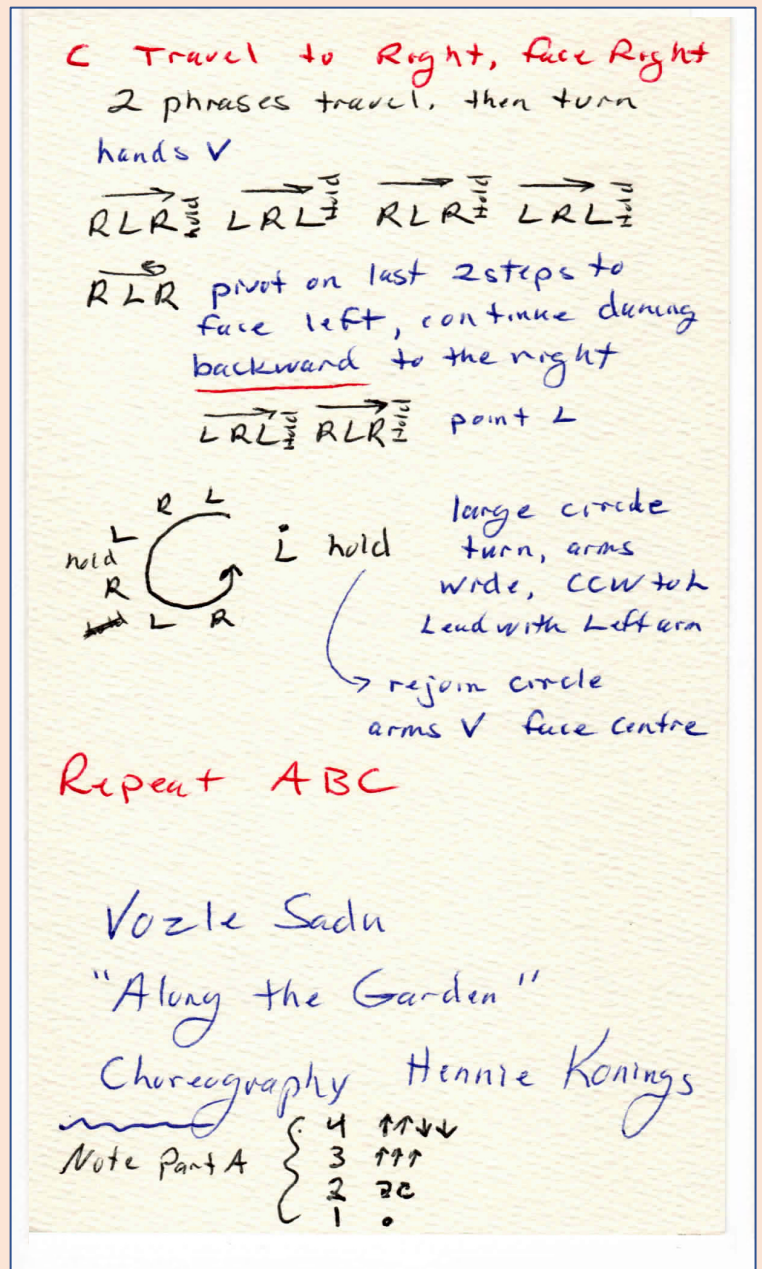 C Travel to Right, face Right
2 phrases travel, then turn
hands V
RLR hold LRL Hold RLR Hold LRL Hold
RLR pivot on last 2 steps to
face left, continue dancing
backward to the right
LRL Hold RLR Hold point L
R L
L
hold
R
L R
L hold
large circle
turn, arms
wide, CCW to L
Lead with Left arm
→ rejoin circle
arms V face centre
Repeat ABC
Vozle Sadu
"Along the Garden"
Choreography Hennie Konings
Note Part A { 4 ↑↑↓↓
3 ↑↑↑
2
1 •